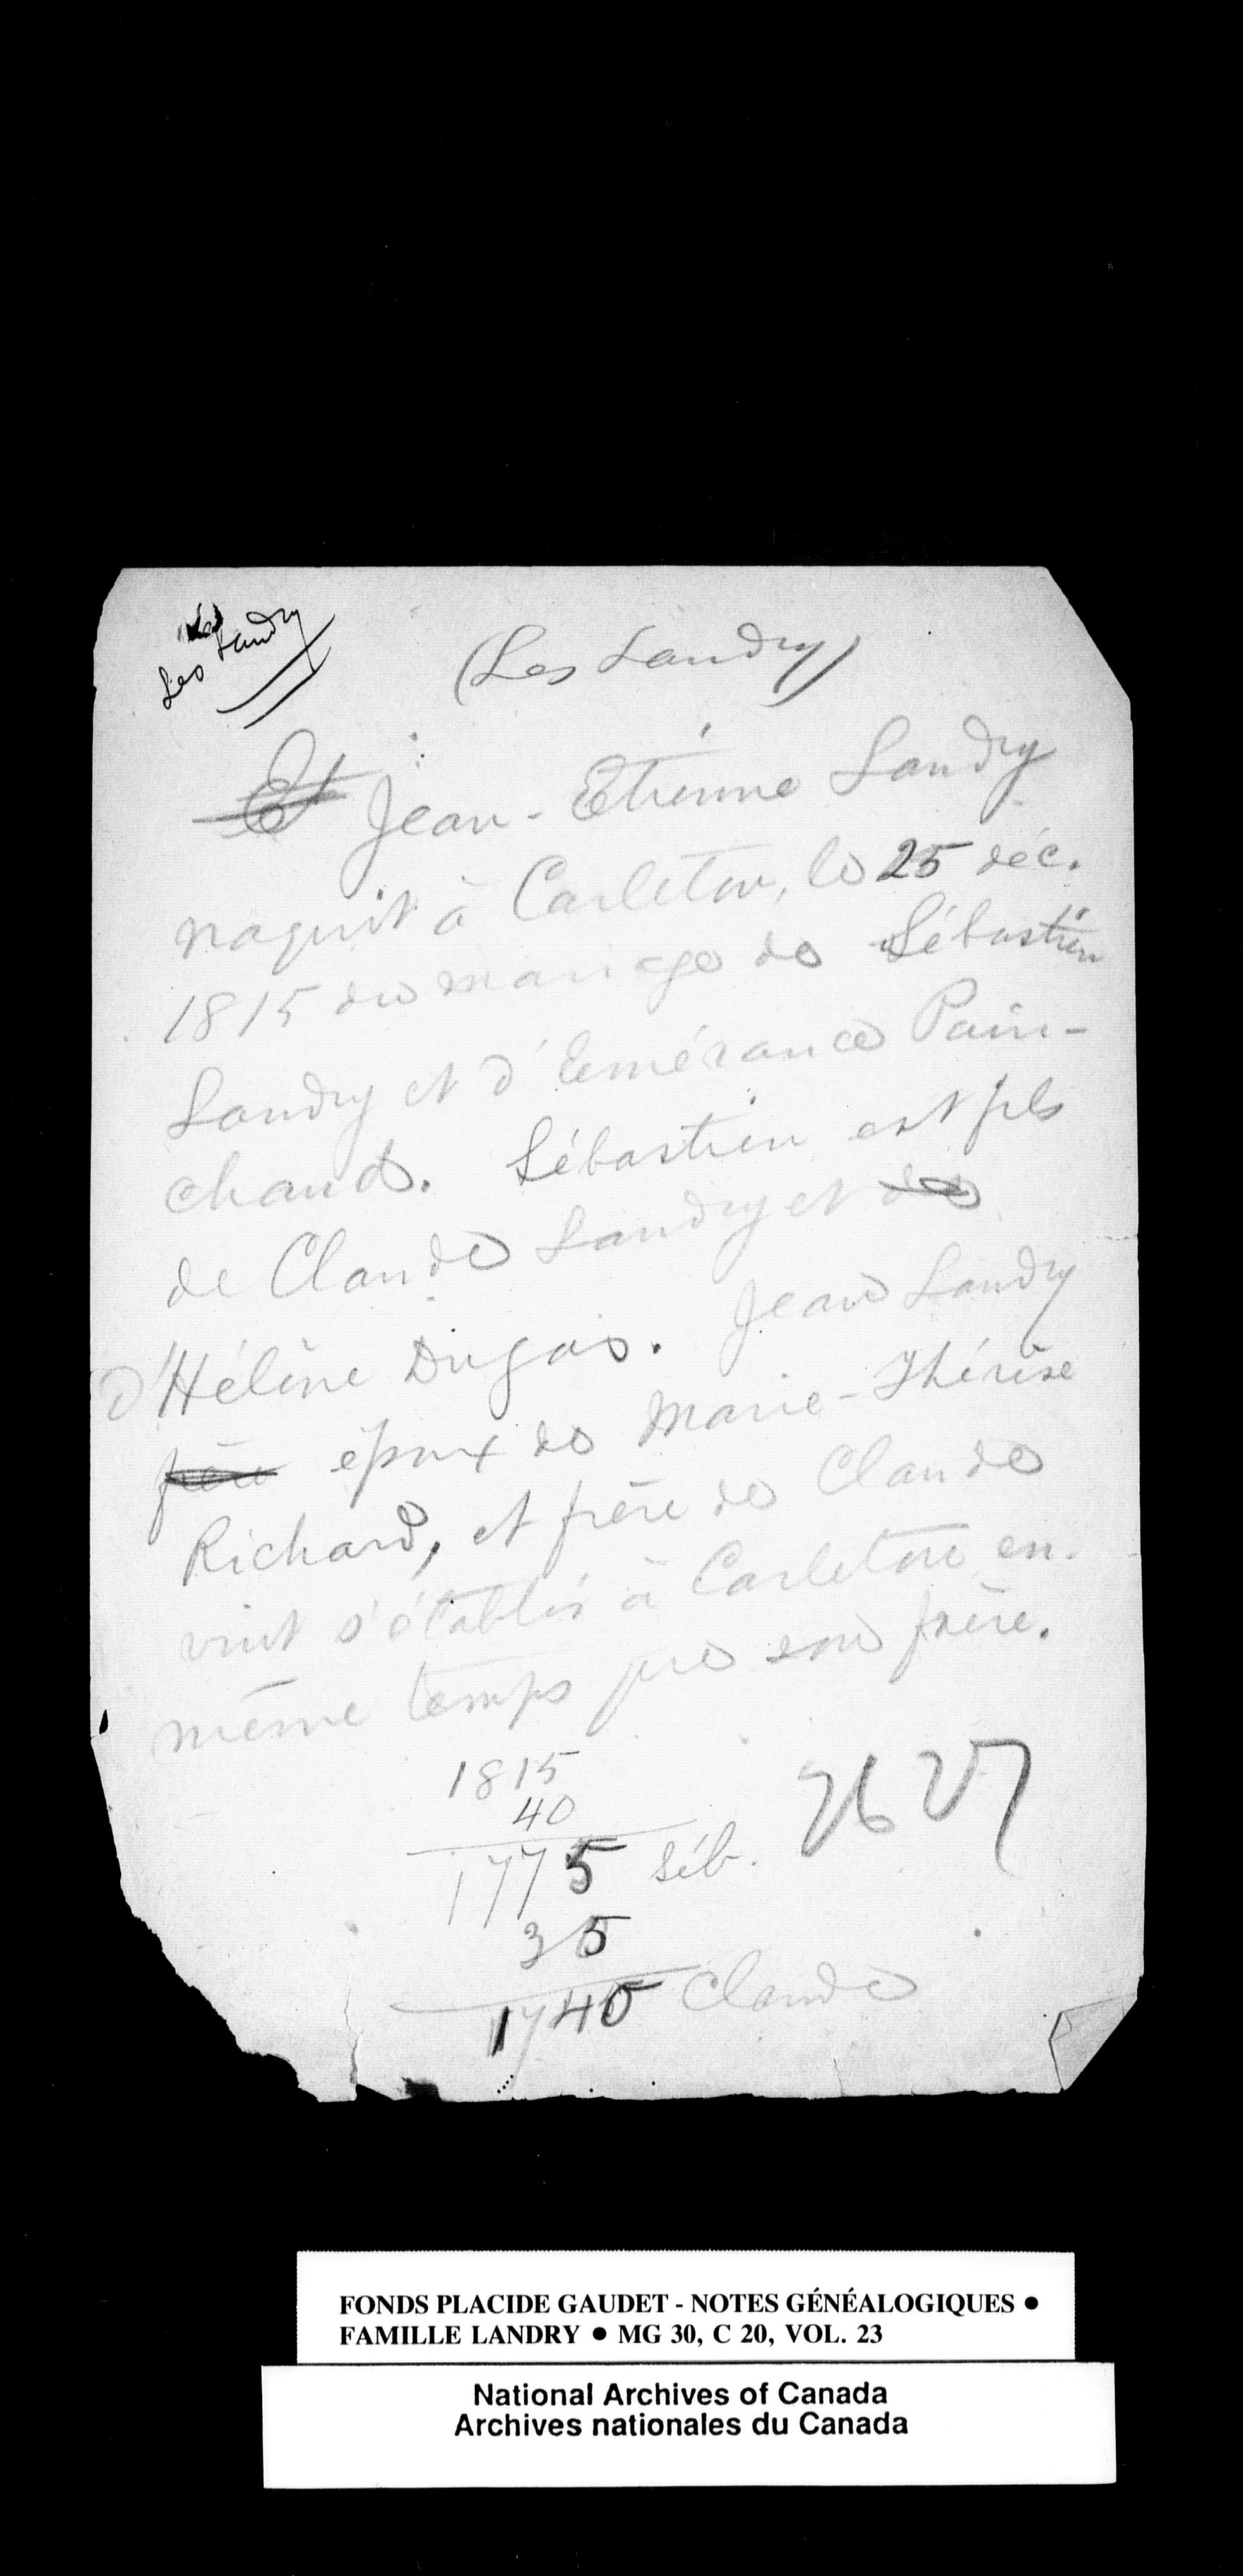 Les Landry
(Les Landry)
Et Jean-Etienne Landry
naquit à Carleton, le 25 déc.
1815 du mariage de Sébastien
Landry et d'Emérance Pain-
chaud. Sébastien est fils
de Claude Landry et de
d'Hélène Dugas. Jean Landry
frère époux de Marie-Thérèse
Richard, et frère de Claude
vint s'établir à Carleton en
même temps que son frère.
1815
40
1775 Séb.
2627
35
1740 Claude
FONDS PLACIDE GAUDET - NOTES GÉNÉALOGIQUES ●
FAMILLE LANDRY ● MG 30, C 20, VOL. 23
National Archives of Canada
Archives nationales du Canada